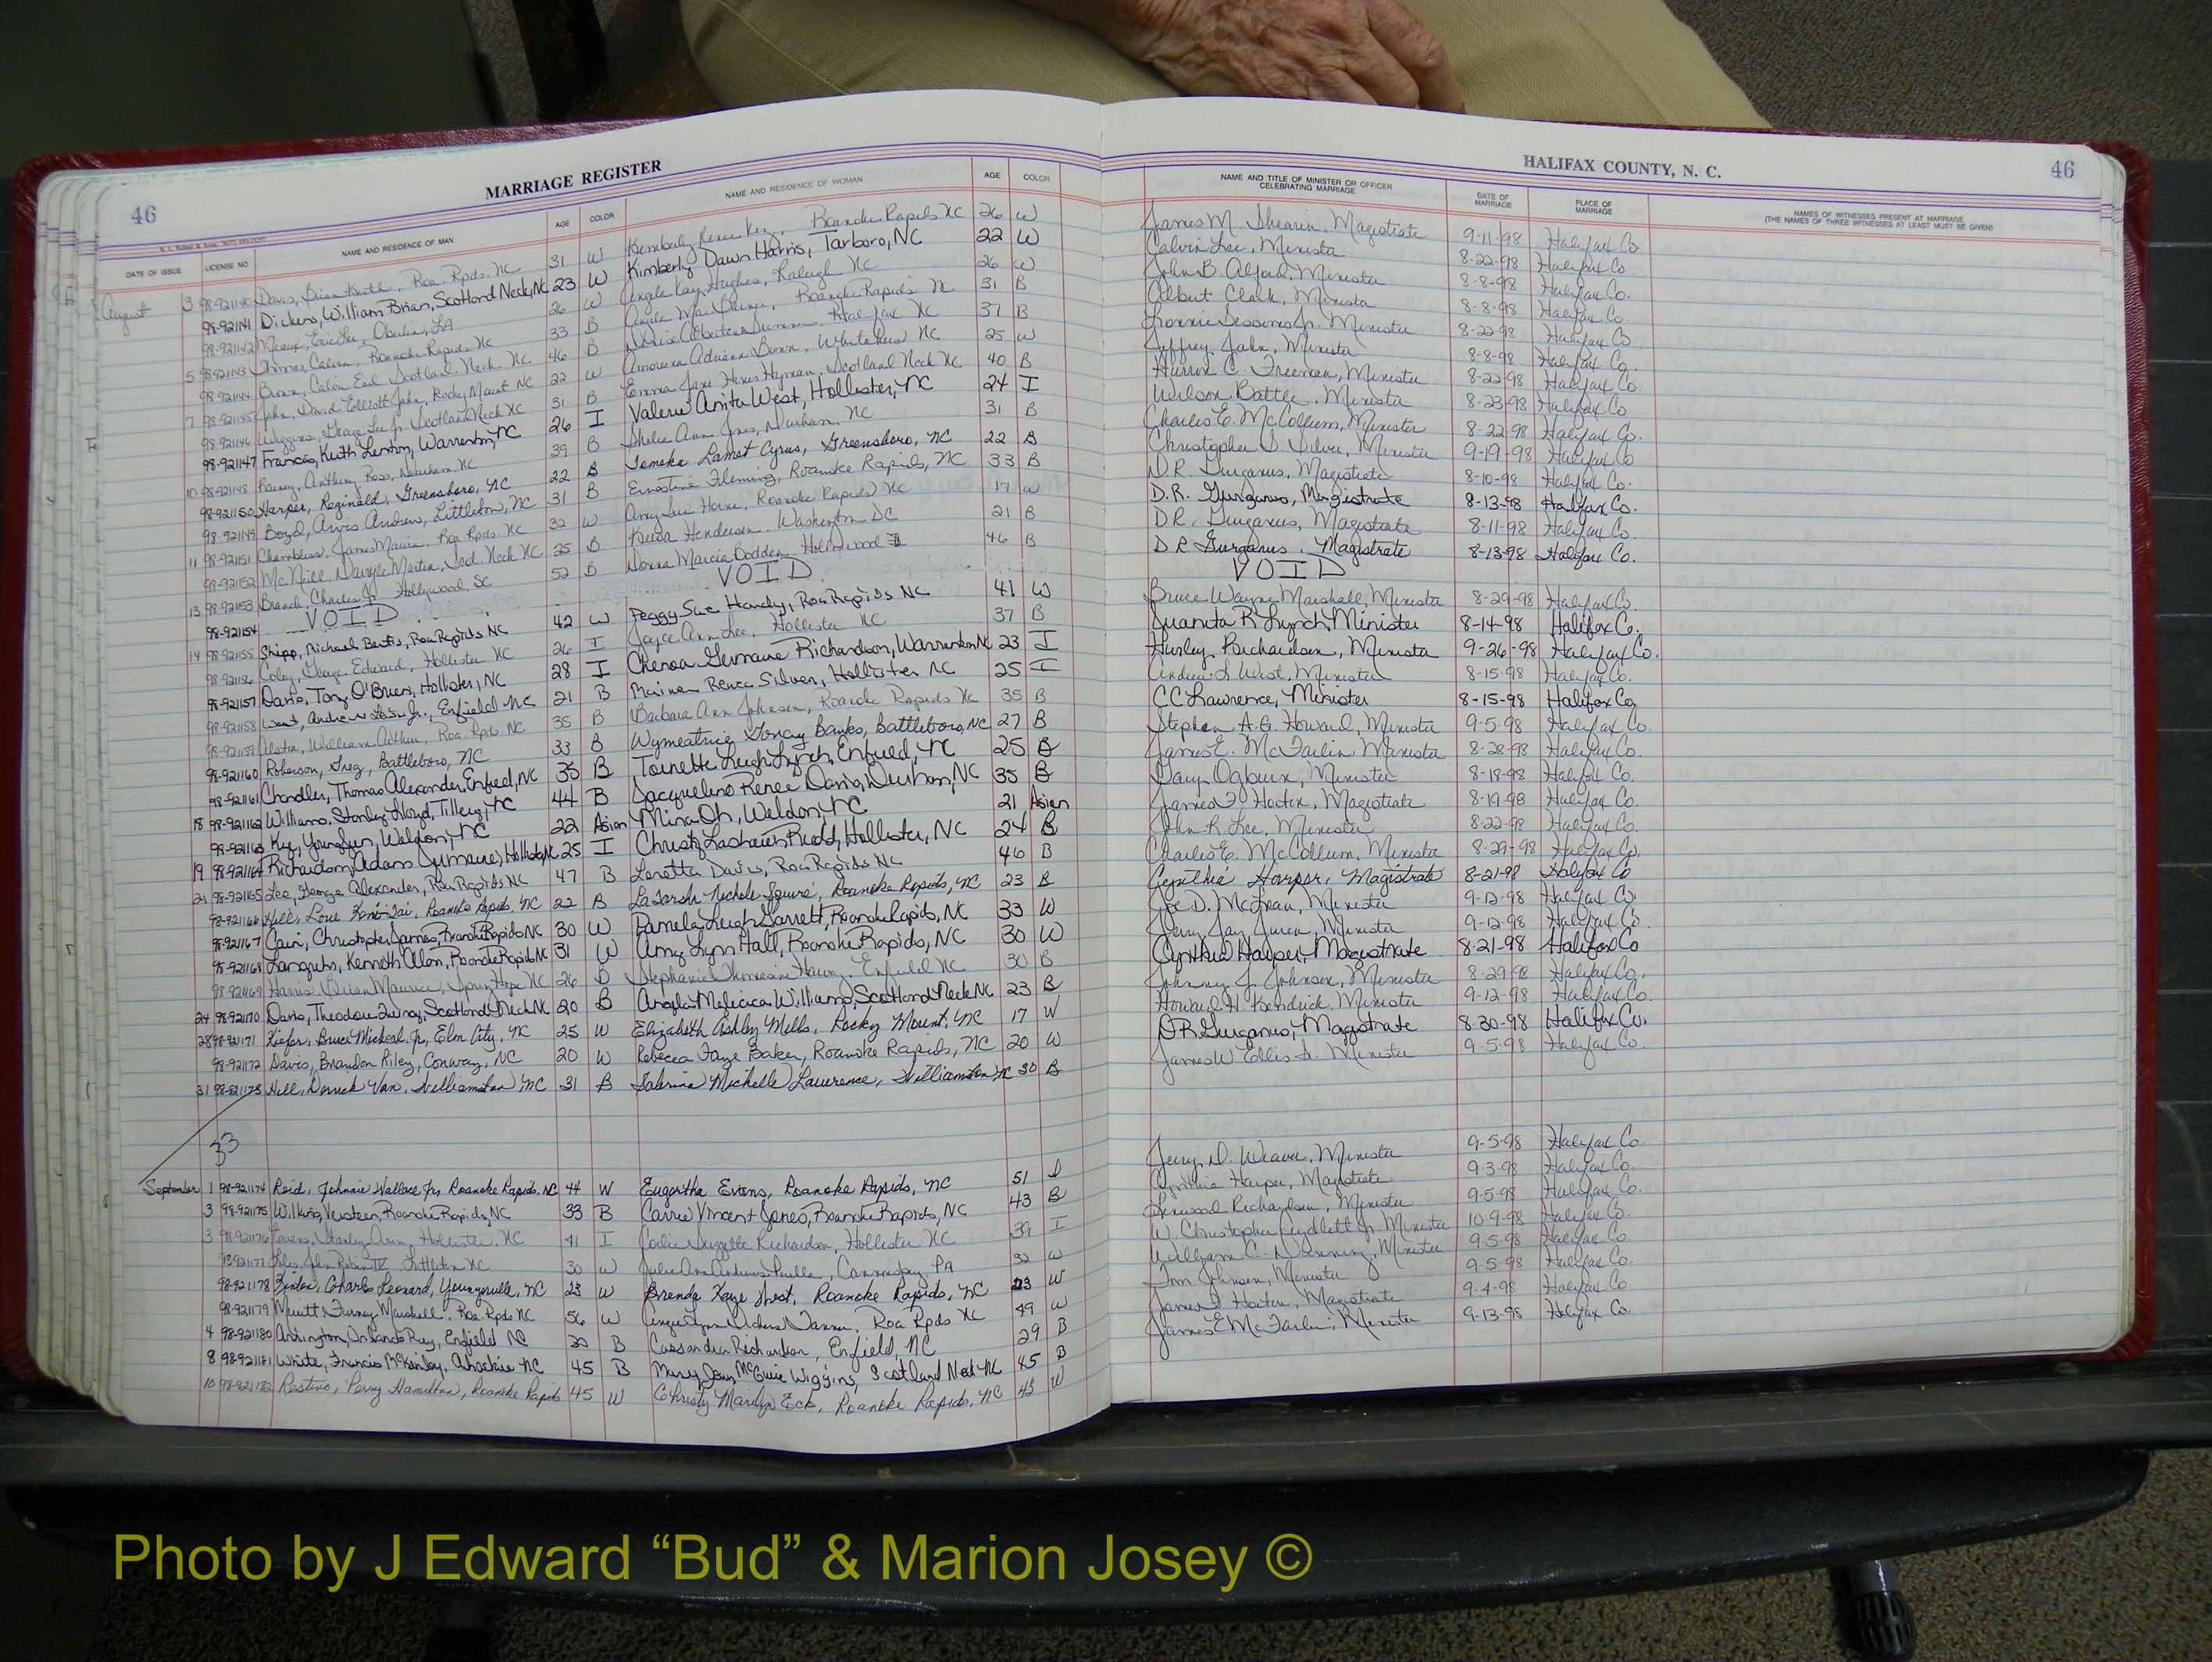 MARRIAGE REGISTER
46
DATE OF ISSUE LICENSE NO. NAME AND RESIDENCE OF MAN AGE COLOR NAME AND RESIDENCE OF WOMAN AGE COLOR
August 3 98-921140 Davis, Brian Keith, Roa. Rpds. NC 31 W Kimberly Renee Key, Roanoke Rapids NC 26 W
98-921141 Dickens, William Brian, Scotland Neck, NC 23 W Kimberly Dawn Harris, Tarboro, NC 22 W
98-921142 Eric Lee, Oberlin, LA 26 W Angela Kay Hughes, Raleigh NC 26 W
5 98-921143 Calvin, Roanoke Rapids NC 33 B Angela Mae Roanoke Rapids NC 31 B
98-921144 Brown, Calvin Earl Scotland Neck NC 46 B Halifax NC 37 B
7 98-921145 John, David Elliott John, Rocky Mount NC 22 W Adriana Whitakers NC 25 W
98-921146 Wiggins, George Lee Jr. Scotland Neck NC 31 B Emma Jane Hines Hyman, Scotland Neck NC 40 B
98-921147 Francis, Keith Lenton, Warrenton, NC 26 I Valerie Anita West, Hollister, NC 24 I
10 98-921148 Anthony Ross, Durham NC 39 B Shelia Ann Jones, Durham, NC 31 B
98-921150 Harper, Reginald, Greensboro, NC 22 B Temeka Lamet Cyrus, Greensboro, NC 22 B
98-921149 Boyd, Arvis Andrew, Littleton, NC 31 B Ernestine Fleming, Roanoke Rapids, NC 33 B
11 98-921151 Chambliss, James Roa Rpds. NC 32 W Amy Sue Horne, Roanoke Rapids NC 17 W
98-921152 McNeill, Daryle Martin, Scot. Neck NC 25 B Henderson, Washington DC 21 B
13 98-921153 Branch, Charles Jr Hollywood, SC 52 B Donna Marcia Bodden Hollywood 46 B
98-921154 VOID VOID
14 98-921155 Shipp, Michael Bertis, Roa Rapids NC 42 W Peggy Sue Handy, Roa Rapids NC 41 W
98-921156 Coley, George Edward, Hollister NC 26 I Joyce Ann Lee, Hollister NC 37 B
98-921157 Davis, Tony O'Brien, Hollister, NC 28 I Chenoa Germaine Richardson, Warrenton NC 23 I
98-921158 West, Andrew Jr., Enfield NC 21 B Renee Silver, Hollister NC 25 I
98-921159 Alston, William Arthur, Roa. Rpds NC 35 B Barbara Ann Johnson, Roanoke Rapids NC 35 B
98-921160 Roberson, Greg, Battleboro, NC 33 B Wymeatrice Banks, Battleboro, NC 27 B
98-921161 Chandler, Thomas Alexander, Enfield, NC 35 B Toinette Leigh Lynch, Enfield, NC 25 B
18 98-921162 Williams, Stanley Lloyd, Tillery, NC 44 B Jacqueline Renee Davis, Durham, NC 35 B
98-921163 Weldon, NC 22 Asian Mina Oh, Weldon, NC 21 Asian
19 98-921164 Richardson, Adam Jermaine, Hollister NC 25 I Christy Lashawn Rudd, Hollister, NC 24 B
21 98-921165 Lee, George Alexander, Roa Rapids NC 47 B Loretta Davis, Roa Rapids NC 46 B
98-921166 Hill, Roanoke Rapids, NC 22 B LaTarsha Nichole Squire, Roanoke Rapids, NC 23 B
98-921167 Cain, Christopher James, Roanoke Rapids NC 30 W Pamela Leigh Garrett, Roanoke Rapids, NC 33 W
98-921168 Kenneth Alan, Roanoke Rapids NC 31 W Amy Lynn Hall, Roanoke Rapids, NC 30 W
98-921169 Harris, Brian Maurice, Spring Hope NC 26 B Stephanie Enfield NC 30 B
24 98-921170 Davis, Theodore Scotland Neck NC 20 B Angela Williams, Scotland Neck NC 23 B
28 98-921171 Kiefer, Bruce Michael, Jr, Elm City, NC 25 W Elizabeth Ashley Mills, Rocky Mount, NC 17 W
98-921172 Davis, Brandon Riley, Conway, NC 20 W Rebecca Faye Baker, Roanoke Rapids, NC 20 W
31 98-921173 Hill, Derrick Van, Williamston NC 31 B Sabrina Michelle Lawrence, Williamston, NC 30 B
33
September 1 98-921174 Reid, Johnnie Wallace Jr, Roanoke Rapids, NC 44 W Eugertha Evans, Roanoke Rapids, NC 51
3 98-921175 Wilkins, Roanoke Rapids, NC 33 B Carrie Vincent Jones, Roanoke Rapids, NC 43 B
3 98-921176 Stanley Hollister, NC 41 I Suzette Richardson, Hollister NC 39 I
98-921177 John IV Littleton NC 30 W Julie Ann Andrews Canonsburg PA 32 W
98-921178 Charles Leonard, Youngsville, NC 23 W Brenda Kaye West, Roanoke Rapids, NC 23 W
98-921179 Merritt Marshall, Roa Rpds NC 56 W Roa Rpds NC 49 W
4 98-921180 Arrington, Orlando Ray, Enfield NC 30 B Cassandra Richardson, Enfield, NC 29 B
8 98-921181 White, Francis McKinley, Ahoskie NC 45 B Mary Jean McGuire Wiggins, Scotland Neck NC 45 B
10 98-921182 Perry Hamilton, Roanoke Rapids 45 W Christy Marilyn Eck, Roanoke Rapids, NC 43 W
HALIFAX COUNTY, N. C.
46
NAME AND TITLE OF MINISTER OR OFFICER CELEBRATING MARRIAGE DATE OF MARRIAGE PLACE OF MARRIAGE NAMES OF WITNESSES PRESENT AT MARRIAGE (THE NAMES OF THREE WITNESSES AT LEAST MUST BE GIVEN)
James M. Shearin, Magistrate 9-11-98 Halifax Co
Calvin Lee, Minister 8-22-98 Halifax Co
John B. Alford, Minister 8-8-98 Halifax Co.
Albert Clark, Minister 8-8-98 Halifax Co.
Lonnie Sessoms Jr. Minister 8-22-98 Halifax Co
Jeffrey John, Minister 8-8-98 Halifax Co.
C. Freeman, Minister 8-22-98 Halifax Co
Wilson Battle, Minister 8-23-98 Halifax Co
Charles E. McCollum, Minister 8-22-98 Halifax Co.
Christopher D. Silver, Minister 9-19-98 Halifax Co
D.R. Gurganus, Magistrate 8-10-98 Halifax Co.
D.R. Gurganus, Magistrate 8-13-98 Halifax Co.
D.R. Gurganus, Magistrate 8-11-98 Halifax Co.
D R Gurganus, Magistrate 8-13-98 Halifax Co.
VOID
Bruce Wayne Marshall, Minister 8-29-98 Halifax Co.
Juanita R Lynch Minister 8-14-98 Halifax Co.
Hurley Richardson, Minister 9-26-98 Halifax Co.
Andrew L West, Minister 8-15-98 Halifax Co.
CC Lawrence, Minister 8-15-98 Halifax Co.
Stephen A.G. Howard, Minister 9-5-98 Halifax Co
James E. McFarlin, Minister 8-28-98 Halifax Co.
Gary Ogburn, Minister 8-18-98 Halifax Co.
James Horton, Magistrate 8-19-98 Halifax Co.
John R. Lee, Minister 8-22-98 Halifax Co.
Charles E. McCollum, Minister 8-29-98 Halifax Co.
Cynthia Harper, Magistrate 8-21-98 Halifax Co
Joe D. Minister 9-12-98 Halifax Co.
Jerry Jay Minister 9-12-98 Halifax Co.
Cynthia Harper, Magistrate 8-21-98 Halifax Co
Johnny J. Johnson, Minister 8-29-98 Halifax Co.
Howard H. Kendrick, Minister 9-12-98 Halifax Co.
DR Gurganus, Magistrate 8-30-98 Halifax Co.
James W Ellis Minister 9-5-98 Halifax Co.
Jerry D. Weaver, Minister 9-5-98 Halifax Co
Cynthia Harper, Magistrate 9-3-98 Halifax Co.
Linwood Richardson, Minister 9-5-98 Halifax Co.
W. Christopher Minister 10-9-98 Halifax Co
William C. Minister 9-5-98 Halifax Co
Tom Johnson, Minister 9-5-98 Halifax Co.
James Horton, Magistrate 9-4-98 Halifax Co.
James E McFarlin, Minister 9-13-98 Halifax Co.
Photo by J Edward “Bud” & Marion Josey ©